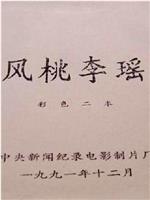 风桃李瑶
彩色二本
中央新闻纪录电影制片厂
一九九一年十二月